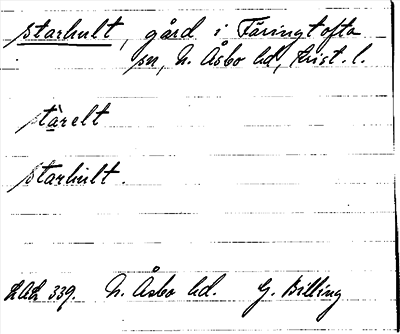 starhult, gård i Färingtofta
sn, N. Åsbo hd, Krist. l.
stàrelt
starhult.
LAL 339. N. Åsbo hd. G. Billing